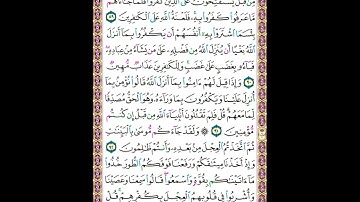 مِن قَبْلُ يَسْتَفْتِحُونَ عَلَى ٱلَّذِينَ كَفَرُوا۟ فَلَمَّا جَآءَهُم
مَّا عَرَفُوا۟ كَفَرُوا۟ بِهِۦ فَلَعْنَةُ ٱللَّهِ عَلَى ٱلْكَٰفِرِينَ ٨٩
بِئْسَمَا ٱشْتَرَوْا۟ بِهِۦٓ أَنفُسَهُمْ أَن يَكْفُرُوا۟ بِمَآ أَنزَلَ
ٱللَّهُ بَغْيًا أَن يُنَزِّلَ ٱللَّهُ مِن فَضْلِهِۦ عَلَىٰ مَن يَشَآءُ مِنْ عِبَادِهِۦ
فَبَآءُو بِغَضَبٍ عَلَىٰ غَضَبٍ وَلِلْكَٰفِرِينَ عَذَابٌ مُّهِينٌ
٩٠ وَإِذَا قِيلَ لَهُمْ ءَامِنُوا۟ بِمَآ أَنزَلَ ٱللَّهُ قَالُوا۟ نُؤْمِنُ بِمَآ
أُنزِلَ عَلَيْنَا وَيَكْفُرُونَ بِمَا وَرَآءَهُۥ وَهُوَ ٱلْحَقُّ مُصَدِّقًا
لِّمَا مَعَهُمْ قُلْ فَلِمَ تَقْتُلُونَ أَنۢبِيَآءَ ٱللَّهِ مِن قَبْلُ إِن كُنتُم
مُّؤْمِنِينَ ٩١ ۞ وَلَقَدْ جَآءَكُم مُّوسَىٰ بِٱلْبَيِّنَٰتِ
ثُمَّ ٱتَّخَذْتُمُ ٱلْعِجْلَ مِنۢ بَعْدِهِۦ وَأَنتُمْ ظَٰلِمُونَ ٩٢
وَإِذْ أَخَذْنَا مِيثَٰقَكُمْ وَرَفَعْنَا فَوْقَكُمُ ٱلطُّورَ خُذُوا۟
مَآ ءَاتَيْنَٰكُم بِقُوَّةٍ وَٱسْمَعُوا۟ قَالُوا۟ سَمِعْنَا وَعَصَيْنَا
وَأُشْرِبُوا۟ فِى قُلُوبِهِمُ ٱلْعِجْلَ بِكُفْرِهِمْ قُلْ